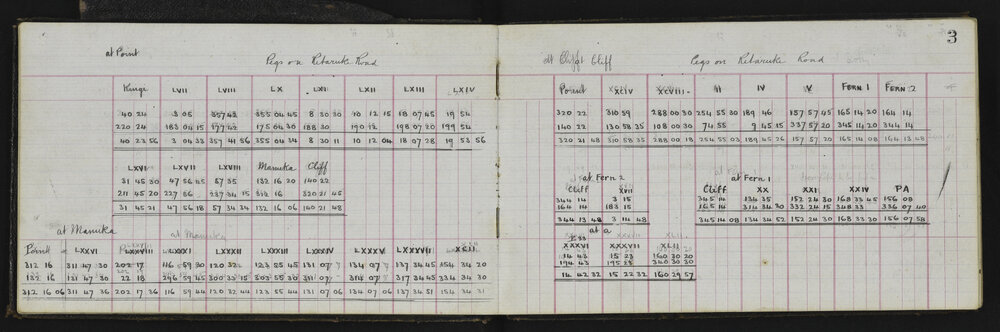 3
at Point Pegs on Retaruke Road
Range LVII LVIII LX LXI LXII LXIII LXIV
40 24 3 05 357 42 355 04 45 8 30 20 10 12 15 18 07 45 19 54
220 24 183 04 15 177 42 175 04 30 188 30 190 12 198 07 20 199 54
40 23 56 3 04 33 357 41 56 355 04 34 8 30 11 10 12 04 18 07 28 19 53 56
LXVI LXVII LXVIII Manuka Cliff
31 45 30 47 56 45 57 35 132 16 20 140 22
211 45 20 227 56 237 34 15 312 16 320 21 45
31 45 21 47 56 18 57 34 34 132 16 06 140 21 48
at Manuka
Point LXXVI LXXXI LXXXII LXXXIII LXXXIV LXXXV LXXXVIII XCII
312 16 311 47 30 202 17 116 59 30 120 32 123 55 45 131 07 134 07 137 34 45 154 34 20
132 16 131 47 30 22 18 296 59 45 300 33 15 303 55 30 311 07 314 07 317 34 45 334 34 30
312 16 06 311 47 36 202 17 36 116 59 44 120 32 44 123 55 44 131 07 06 134 07 06 137 34 51 154 34 31
At Cliff Pegs on Retaruke Road
Point XCIV XCVIII III IV V FERN 1 FERN 2
320 22 310 59 288 00 30 254 55 30 189 46 157 57 45 165 14 20 164 14
140 22 130 58 35 108 00 30 74 55 9 45 15 337 57 20 345 14 20 344 14
320 21 48 310 58 35 288 00 18 254 55 03 189 45 26 157 57 20 165 14 08 164 13 48
at Fern 2
Cliff XVII
344 14 3 15
164 14 183 15
344 13 48 3 14 48
at Fern 1
Cliff XX XXI XXIV PA
345 14 134 35 152 24 30 168 33 45 156 08
165 14 314 34 30 332 24 15 348 33 336 07 40
345 14 08 134 34 52 152 24 30 168 33 20 156 07 58
at a
XXXVI XXXVII XLII
14 43 15 23 160 30 20
194 43 195 23 340 30 20
14 42 32 15 22 32 160 29 57